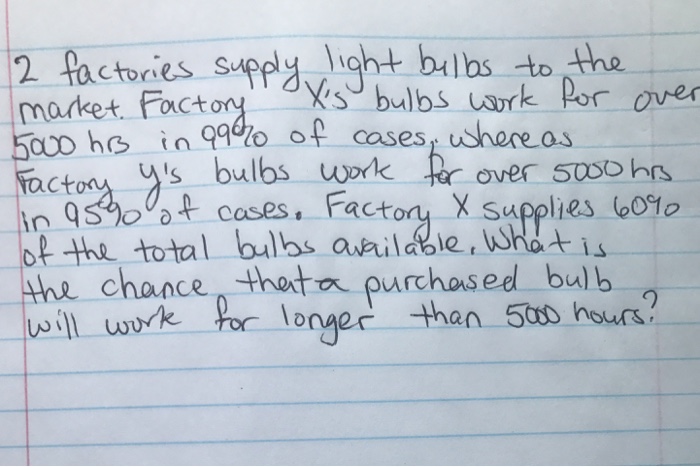 2 factories supply light bulbs to the
market. Factory X's bulbs work for over
5000 hrs in 99% of cases, whereas
Factory y's bulbs work for over 5000 hrs
in 95% of cases. Factory X supplies 60%
of the total bulbs available. What is
the chance that a purchased bulb
will work for longer than 5000 hours?